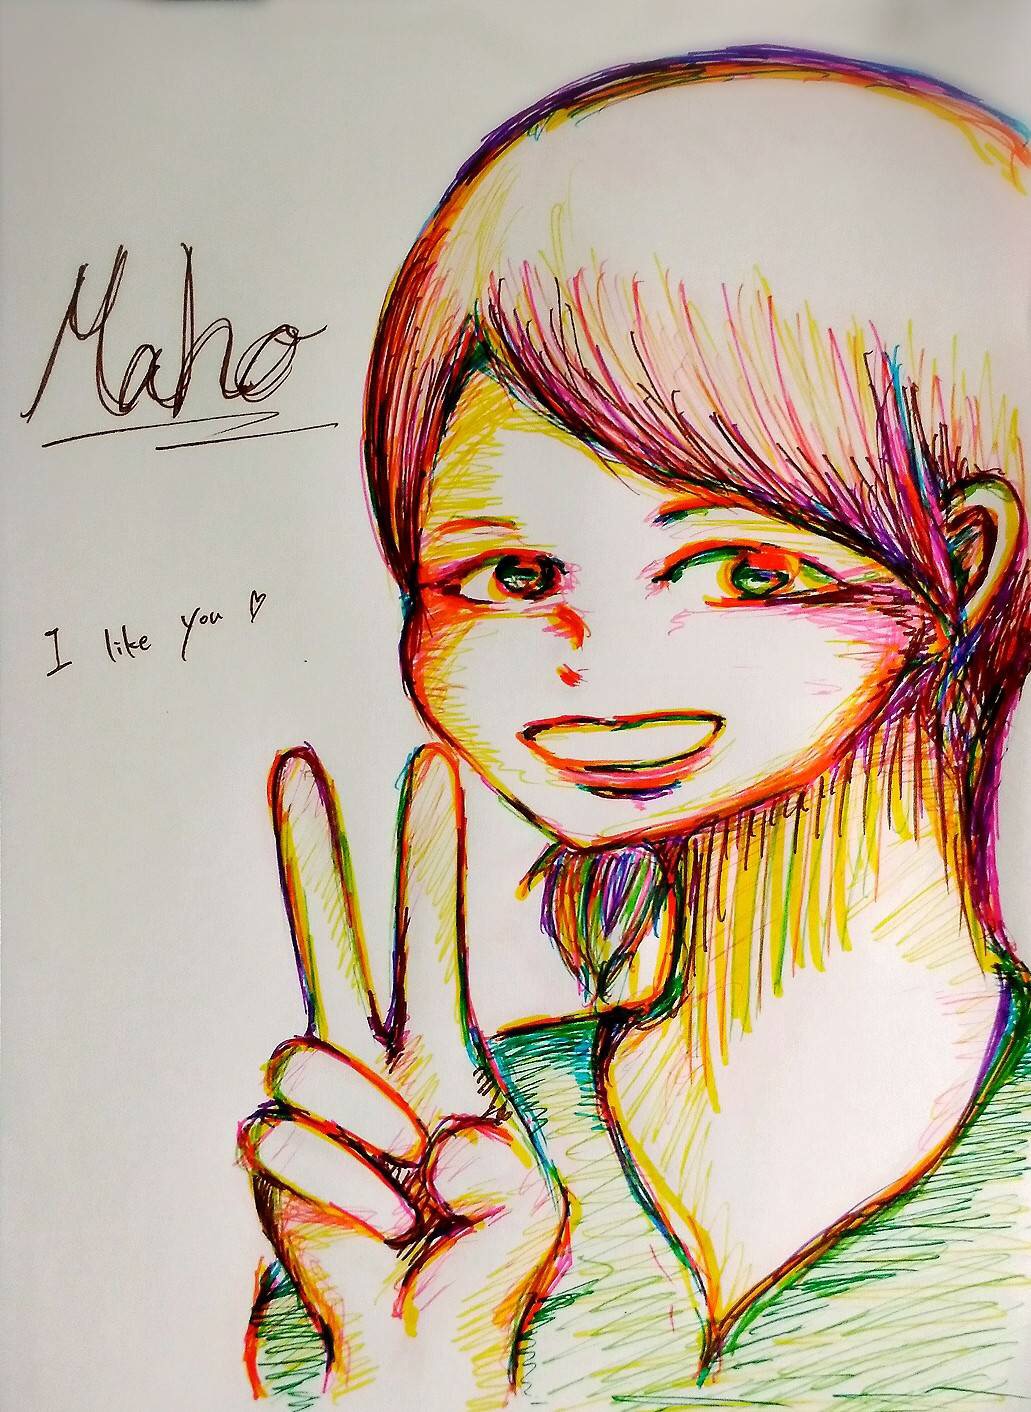 Maho
I like you ♡